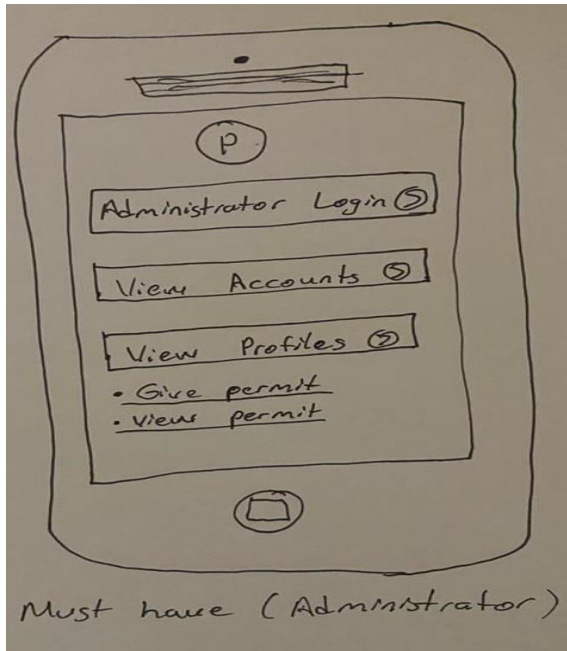 P
Administrator Login >
View Accounts >
View Profiles >
• Give permit
• View permit
Must have (Administrator)